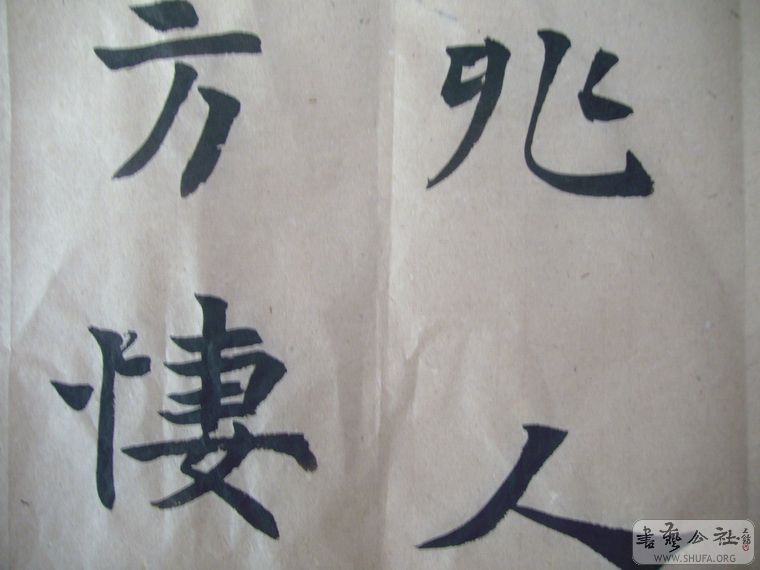 兆人
方悽
書藝公社
WWW.SHUFA.ORG